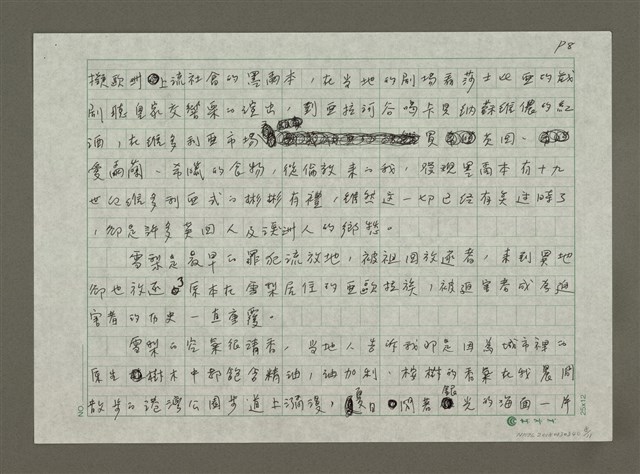 P8
擬歐洲上流社會的墨爾本，在當地的劇場看莎士比亞的戲
劇聽皇家交響樂的演出，到亞拉河谷喝卡貝納蘇維儂的紅
酒，在維多利亞市場買英國、
愛爾蘭、希臘的食物，從倫敦來的我，發現墨爾本有十九
世紀維多利亞式的彬彬有禮，雖然這一切已經有点过時了
，卻是許多英國人及澳洲人的鄉愁。
雪梨是最早的罪犯流放地，被祖國放逐者，來到異地
卻也放逐了原本在雪梨居住的亞歐拉族，被迫害者成為迫
害者的历史一直重覆。
雪梨的空氣很清香，當地人告訴我那是因為城市裡的
原生樹木中都飽含精油，油加利、桉樹的香氣在我晨間
散步的港灣公園步道上瀰漫，夏日閃著銀光的海面一片
NO.
25x12